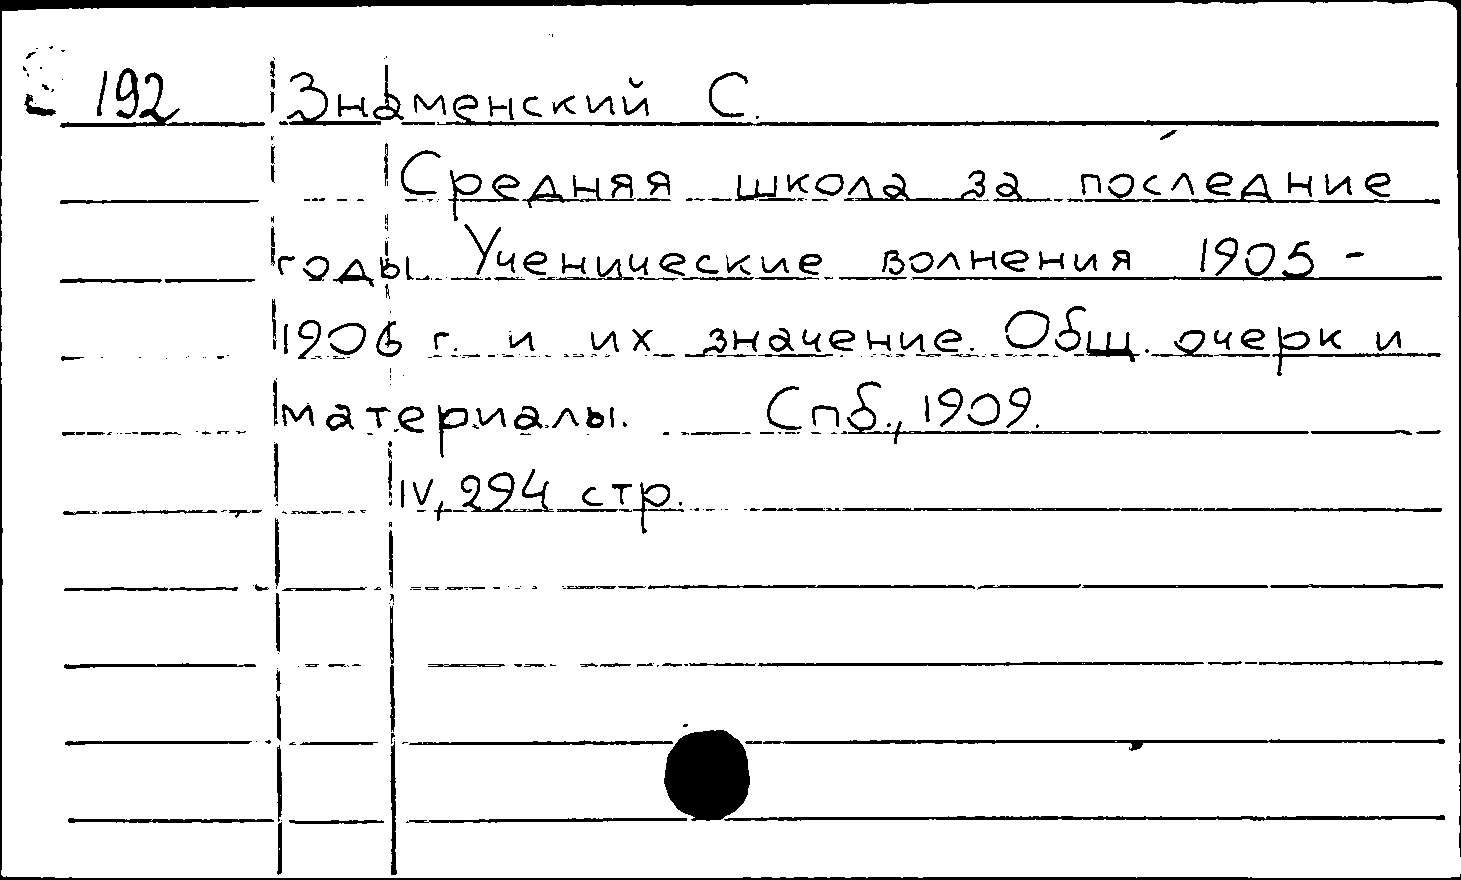 192 Знаменский С.
Средняя школа за последние
годы. Ученические волнения 1905-
1906 г. и их значение. Общ. очерк и
материалы. Спб., 1909.
IV, 294 стр.